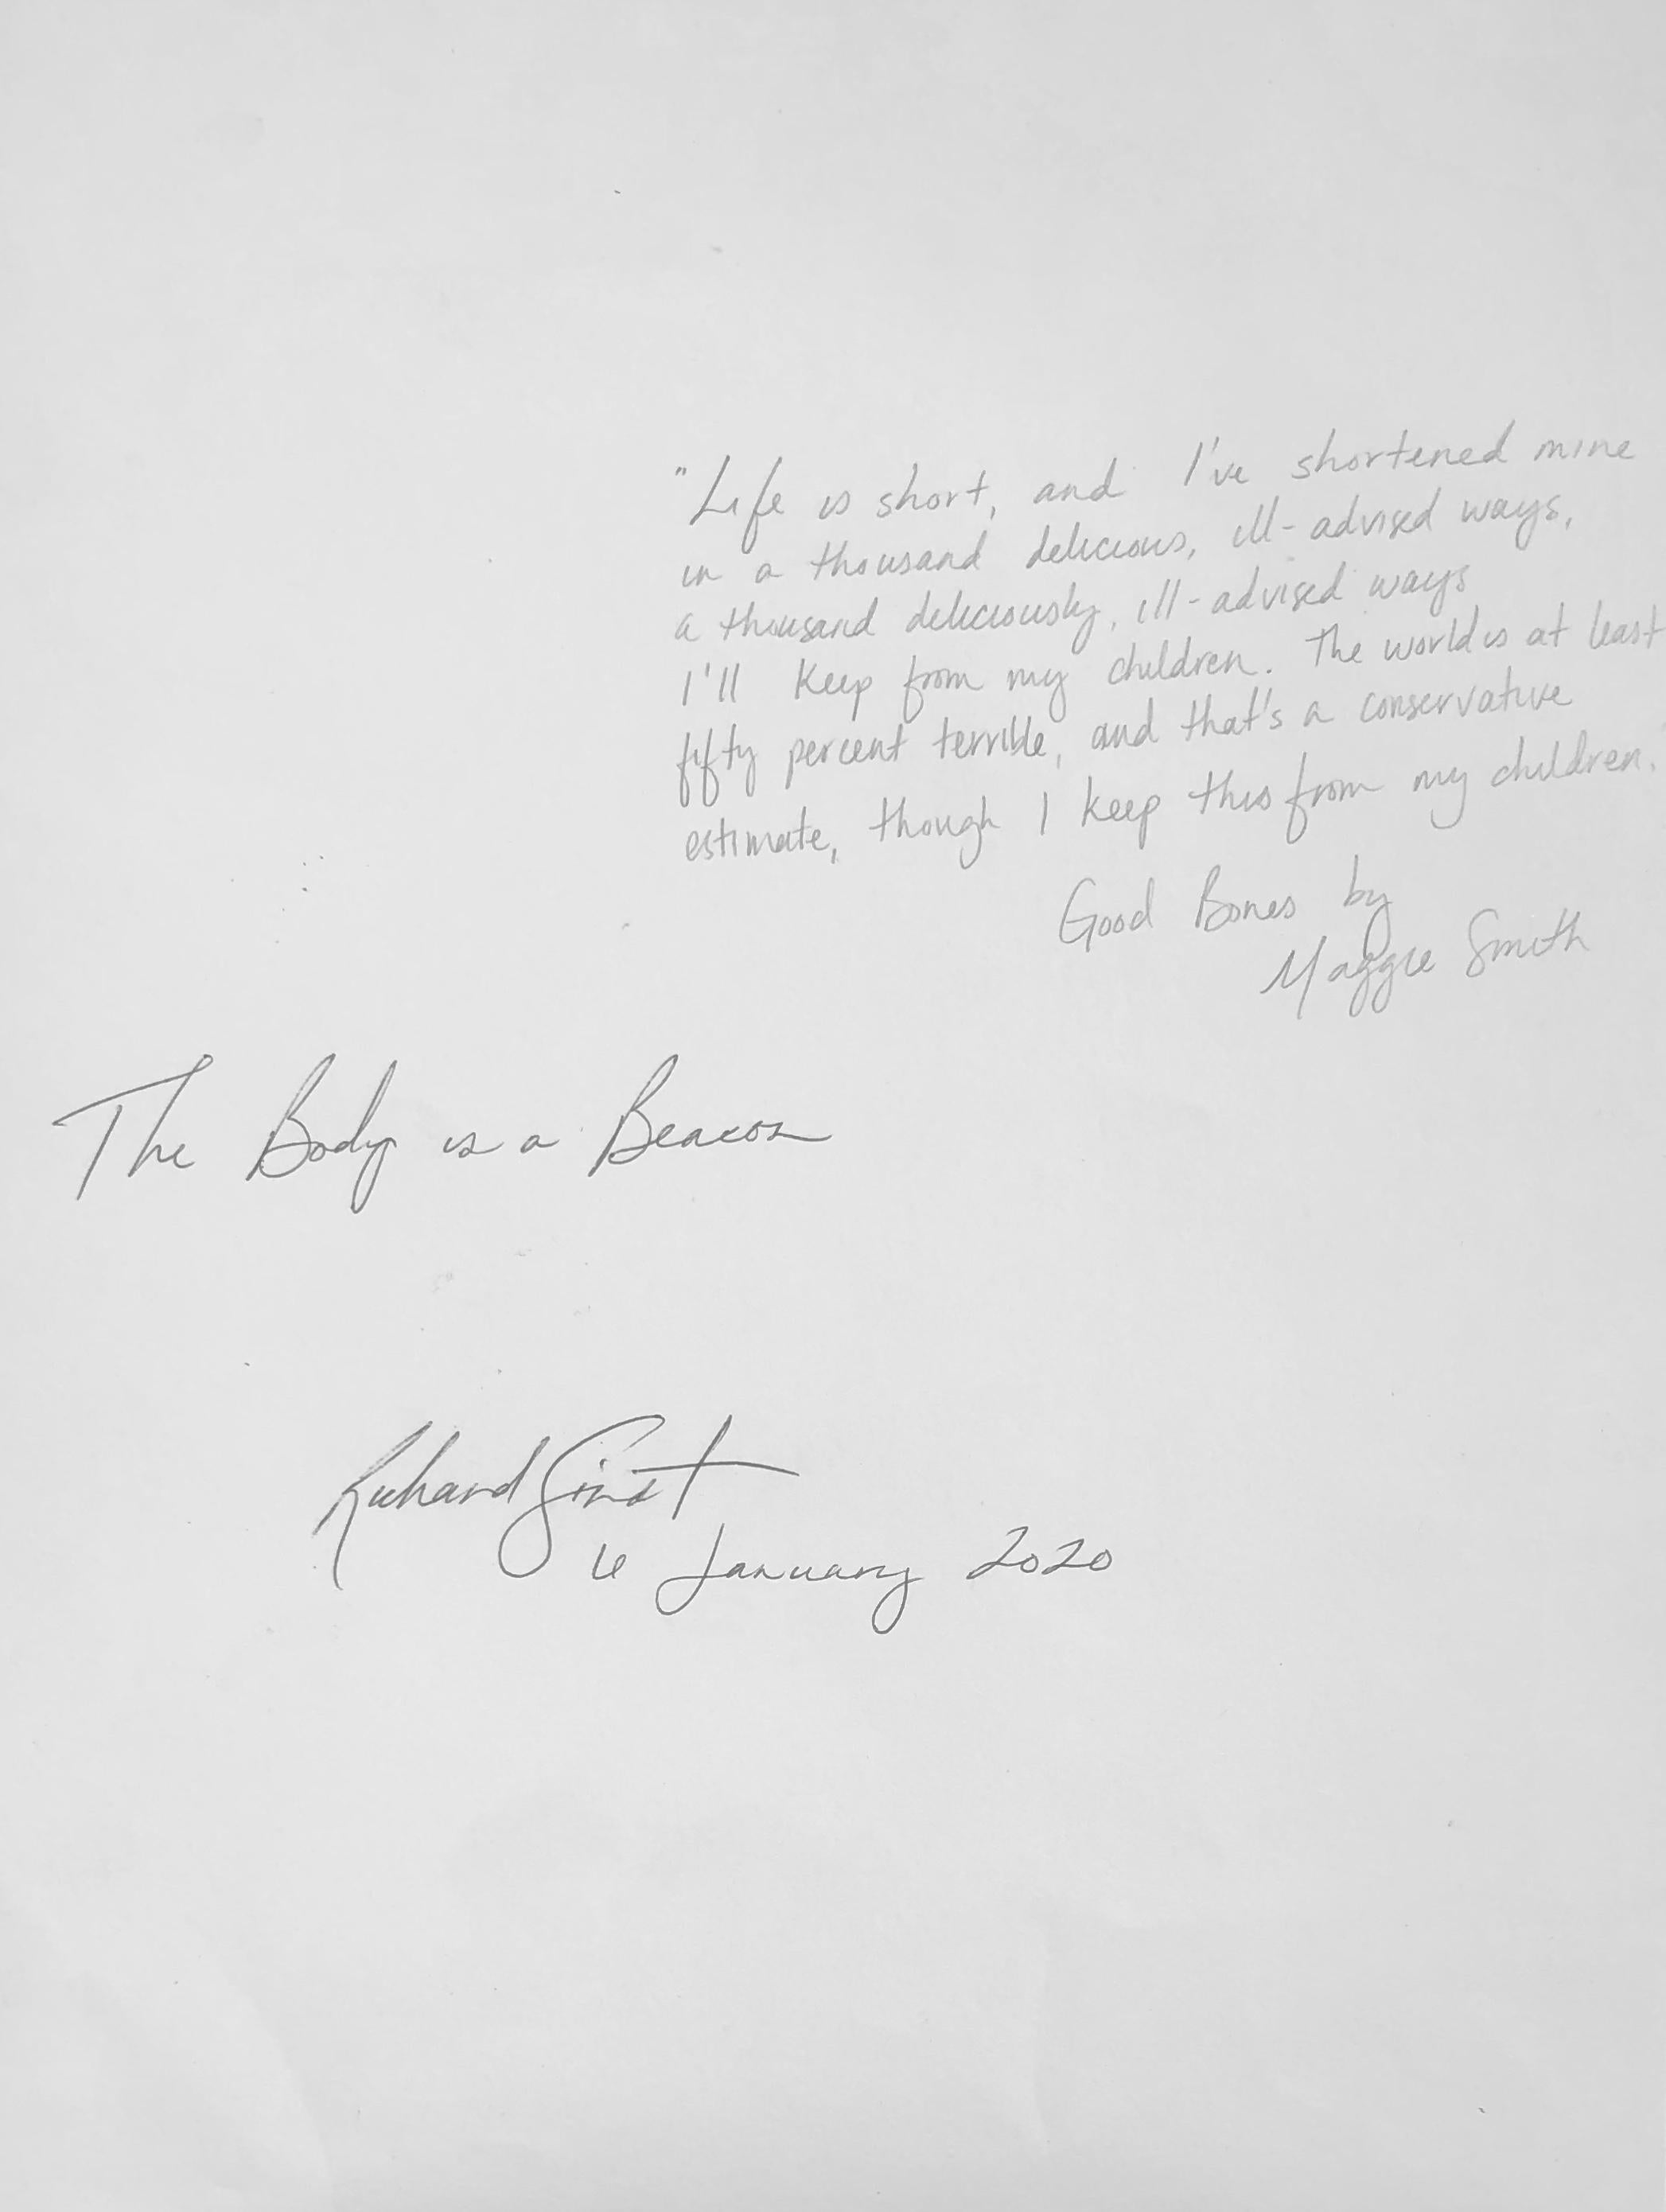 "Life is short, and I've shortened mine
in a thousand delicious, ill-advised ways,
a thousand deliciously, ill-advised ways
I'll keep from my children. The world is at least
fifty percent terrible, and that's a conservative
estimate, though I keep this from my children.
Good Bones by
Maggie Smith
The Body is a Beacon
Richard
6 January 2020